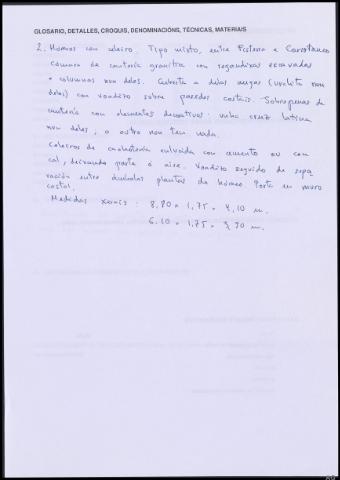 GLOSARIO, DETALLES, CROQUIS, DENOMINACIÓNS, TÉCNICAS, MATERIAIS
2. Hórreos con celeiro. Tipo mixto, entre Fisterra e Carnota
cámara de cantería granítica con
e columnas nun deles. Cuberta a dúas augas (
deles) con vandizo sobre paredes costais. Sobrepenas de
cantería con elementos decorativos: unha cruz latina
nun deles, o outro non ten nada.
Celeiros de cachotería caleada con cemento ou con
cal, deixando parte ó aire. Vandizo seguido de sepa
ración entre dúas plantas do hórreo. Porta en muro
costal.
Medidas xerais: 8,80 × 1,75 × 4,10 m.
6.10 × 1,75 × 3,90 m.